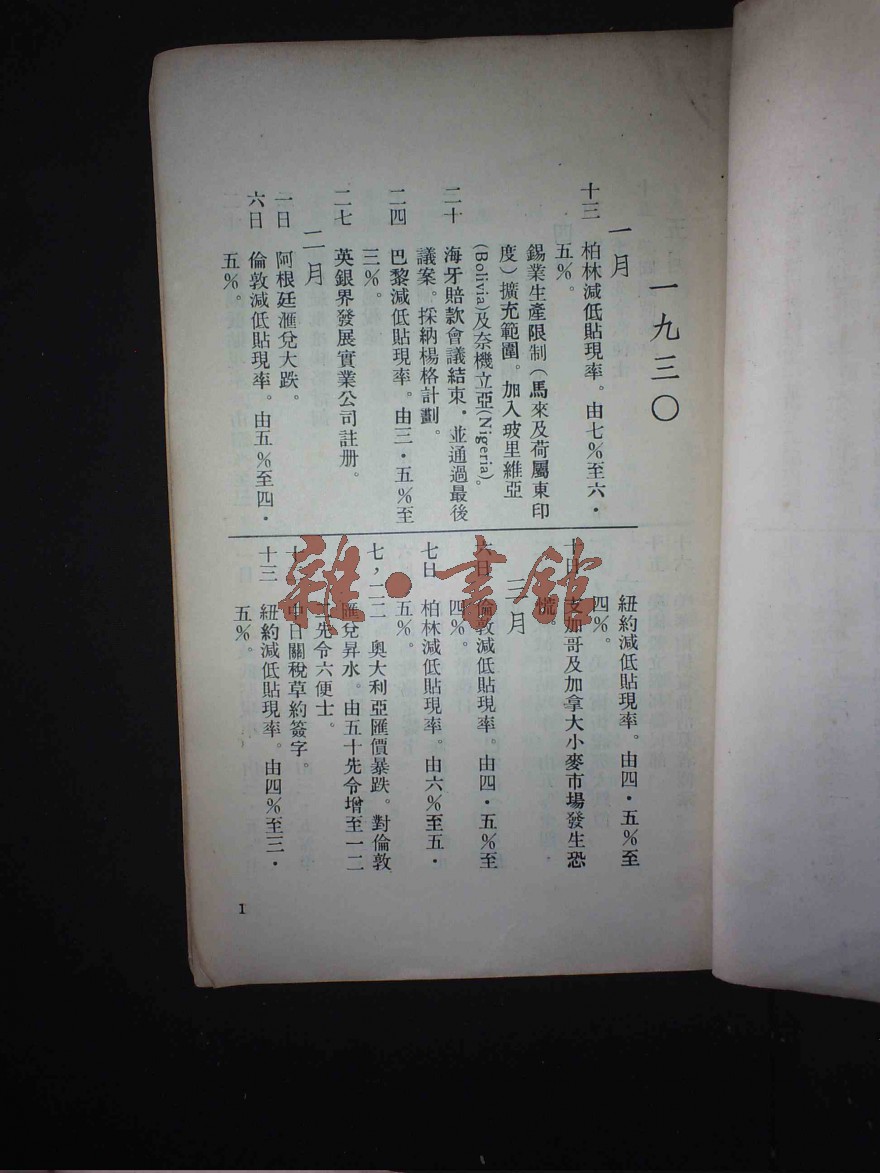 一九三〇
一月
十三　柏林減低貼現率。由七%至六・
五%。
錫業生產限制（馬來及荷屬東印
度）擴充範圍。加入玻里維亞
(Bolivia)及奈機立亞(Nigeria)。
二十　海牙賠款會議結束，並通過最後
議案。採納楊格計劃。
二四　巴黎減低貼現率。由三・五%至
三%。
二七　英銀界發展實業公司註册。
二月
一日　阿根廷滙兌大跌。
六日　倫敦減低貼現率。由五%至四・
五%。
紐約減低貼現率。由四・五%至
四%。
十日　支加哥及加拿大小麥市場發生恐
慌。
三月
六日　倫敦減低貼現率。由四・五%至
四%。
七日　柏林減低貼現率。由六%至五・
五%。
七，二二　奧大利亞匯價暴跌。對倫敦
匯兌昇水。由五十先令增至一二
先令六便士。
中日關稅草約簽字。
十三　紐約減低貼現率。由四%至三・
五%。
I
雜・書館